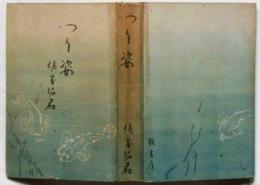 つり姿
佐藤垢石
つり姿
佐藤垢石